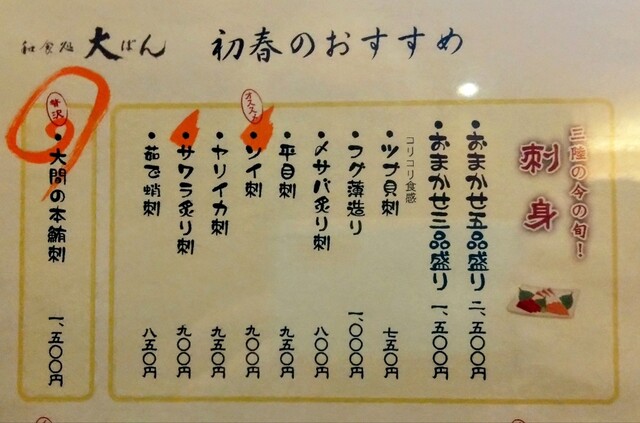 和食処 大ばん 初春のおすすめ
三陸の今の旬！
刺身
・おまかせ五品盛り 二、五〇〇円
・おまかせ三品盛り 一、五〇〇円
コリコリ食感
・ツブ貝刺 七五〇円
・フグ薄造り 一、〇〇〇円
・〆サバ炙り刺 八〇〇円
・平目刺 九五〇円
オススメ
・ソイ刺 九〇〇円
・ヤリイカ刺 九五〇円
・サワラ炙り刺 九〇〇円
・茹で蛸刺 八五〇円
贅沢
・大間の本鮪刺 一、五〇〇円